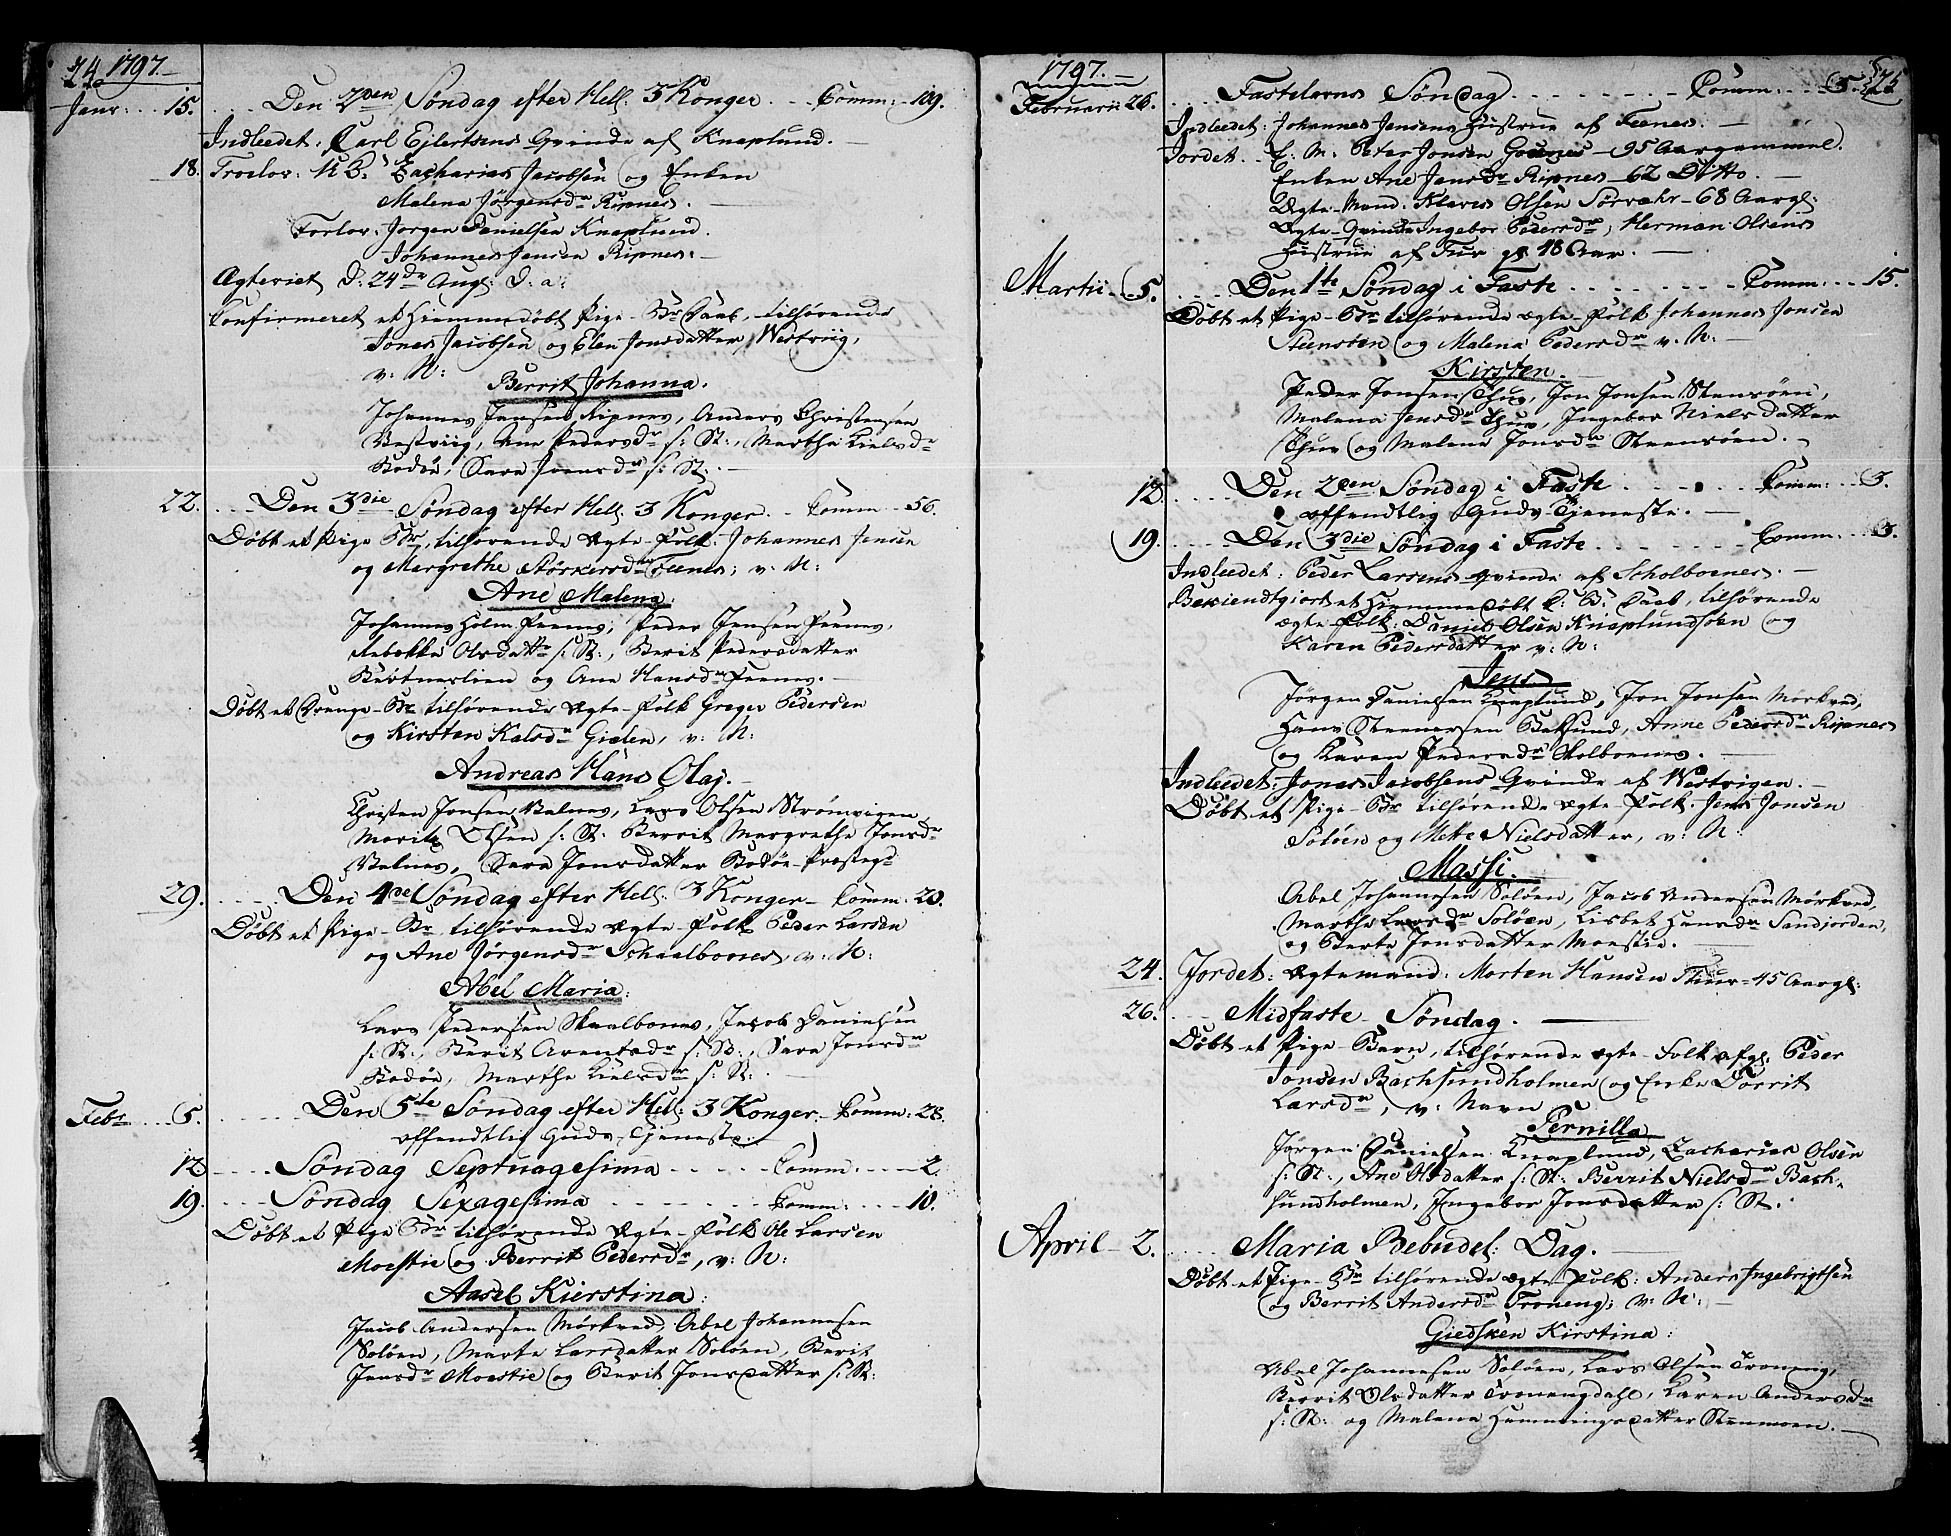 74 1797.
Janr: 15. Den 2den Søndag efter Hell. 3 Konger. Comm: 109.
Indleedet: Carl Ejlertsens Qvinde af Knaplund.
18. Troelov: U. B. Zacharias Jacobsen og Enken
Malena Jørgensdr Ripnes.
Forlov: Jørgen Danielsen Knaplund.
Johannes Jensen Ripnes.
Ægteviet d: 24de Aug: d. a:
Confirmeret et Hiemmedøbt Pige-Br Daab, tilhørende
Jonas Jacobsen og Elen Jonsdatter, Westviig,
v: N:
Berrit Johanna.
Johannes Jensen Ripnes, Anders Christensen
Vestviig, Ane Pedersdr s: St:, Marthe Nielsdr
Bodøe, Sara Jonsdr s: St:
22. Den 3die Søndag efter Hell. 3 Konger. Comm 56.
Døbt et Pige Br, tilhørende Ægte-Folk: Johannes Jensen
og Margrethe Størkersdr Feenes; v: N:
Ane Malena.
Johannes Holm Feenes, Peder Jensen Feenes,
Rebekka Olsdattr s: St:, Berit Pedersdatter
og Ane Hansdr Feenes.
Døbt et Drenge-Br tilhørende Ægte-Folk Greger Pedersen
og Kirsten Kalsdr Gielen, v: N:
Andreas Hans Olaj.
Christen Jonsen Valnes, Lars Olsen Strømvigen,
Morits Olsen s: St: Berrit Margrethe Jonsdr
Valnes, Sara Jonsdatter Bodøe-Præstegd
29. Den 4de Søndag efter Hell. 3 Konger Comm: 20.
Døbt et Pige-Br tilhørende Ægte-Folk Peder Larsen
og Ane Jørgensdr Schaalbones, v: N:
Abel Maria.
Lars Pedersen Skaalbones, Jacob Danielsen
s: St:, Berit Arentsdr s: St:, Sara Jonsdr
Bodøe, Marthe Nielsdr s: St:
Febr 5. Den 5te Søndag efter Hell: 3 Konger. Comm: 28.
offendtlig Guds-Tjeneste.
12. Søndag Septuagesima Comm: 2.
19. Søndag Sexagesima Comm: 10.
Døbt et Pige Br tilhørende Ægte-Folk Ole Larsen
Moestie og Berrit Pedersdr, v: N:
Aasel Kierstina:
Jacob Andersen Mørkved, Abel Johannesen
Soløen, Marte Larsdatter Soløen, Berit
Jensdr Moestie og Berit Jonsdatter s: St:
1797. 75
Februarii 26. Fastelavns Søndag Comm: 5.
Indleedet: Johannes Jensens Hustrue af Feenes.
Jordet. E. M. Peter Jonsen 95 Aar gammel.
Enken Ane Jensdr Ripnes 62 Ditto.
Ægte-Mand: Klaves Olsen Sørvær 68 Aargl:
Ægte-Qvinde Ingebor Pedersdr, Herman Olsens
Hustrue af Fur 48 Aar.
Martii 5. Den 1te Søndag i Faste Comm: 15.
Døbt et Pige-Br tilhørende Ægte-Folk Johannes Jonsen
Steensøen og Malena Pedersdr v: N:
Kirsten.
Peder Jonsen Thuv, Jon Jonsen Stensøen,
Malena Jensdr Thuv, Ingebor Nielsdatter
Thuv og Malena Jonsdr Steensøen.
12. Den 2den Søndag i Faste Comm: 3.
offendtlig Guds Tjeneste.
19. Den 3die Søndag i Faste Comm: 3.
Indleedet: Peder Larsens Qvinde af Scholboenes.
Bekiendtgiort et Hiemmedøbt D: B: Daab, tilhørende
Ægte-Folk: Daniel Olsen Knaplundsøen og
Karen Pedersdatter v: N:
Jens
Jørgen Danielsen Knaplund, Jon Jonsen Mørkved,
Hans Steenersen Baksund, Anne Pedersdr Ripnes
og Karen Pedersdr Skolboenes.
Indleedet: Jonas Jacobsens Qvinde af Westvigen.
Døbt et Pige-Br tilhørende Ægte-Folk Jens Jonsen
Soløen og Mette Nielsdatter, v: N:
Massi.
Abel Johannesen Soløen, Jacob Andersen Mørkved,
Marthe Larsdr Soløen, Lisbet Hansdr Sandjorden,
og Berte Jonsdatter Moestie.
24. Jordet: Ægtemand: Morten Hansen Thuv 45 Aargl:
26. Midfaste Søndag.
Døbt et Pige Barn, tilhørende Ægte-Folk afg: Peder
Jonsen Bachsundholmen og Enke Dorrit
Larsdr, v: Navn
Pernilla
Jørgen Danielsen Knaplund, Zacharias Olsen
s: St:, Ane Olsdatter s: St: Berrit Nielsdr Bach-
sundholmen, Ingebor Jonsdatter s: St:
April 2. Maria Bebudel: Dag.
Døbt et Pige-Br tilhørende Ægte-Folk: Anders Ingebrigtsen
og Berrit Andersdr Troneng; v: N:
Giedsken Kirstina:
Abel Johannesen Soløen, Lars Olsen Troneng,
Berrit Olsdatter Tronengdahl, Karen Andersdr
s: St: og Malena Hemmingsdatter Stenmoen.